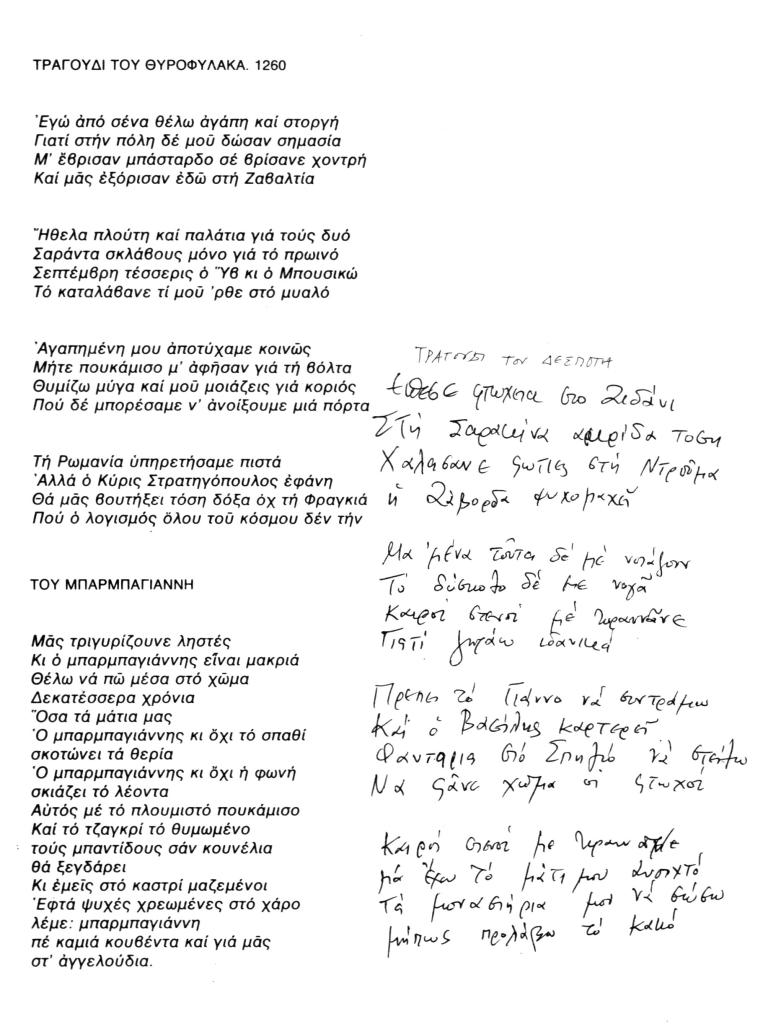 ΤΡΑΓΟΥΔΙ ΤΟΥ ΘΥΡΟΦΥΛΑΚΑ. 1260
Ἐγώ ἀπό σένα θέλω ἀγάπη καί στοργή
Γιατί στήν πόλη δέ μοῦ δώσαν σημασία
Μ' ἔβρισαν μπάσταρδο σέ βρίσανε χοντρή
Καί μᾶς ἐξόρισαν ἐδῶ στή Ζαβαλτία
Ἤθελα πλούτη καί παλάτια γιά τούς δυό
Σαράντα σκλάβους μόνο γιά τό πρωινό
Σεπτέμβρη τέσσερις ὁ Ὕβ κι ὁ Μπουσικώ
Τό καταλάβανε τί μοῦ 'ρθε στό μυαλό
Ἀγαπημένη μου ἀποτύχαμε κοινῶς
Μήτε πουκάμισο μ' ἀφῆσαν γιά τή βόλτα
Θυμίζω μύγα καί μοῦ μοιάζεις γιά κοριός
Πού δέ μπορέσαμε ν' ἀνοίξουμε μιά πόρτα
Τή Ρωμανία ὑπηρετήσαμε πιστά
Ἀλλά ὁ Κύρις Στρατηγόπουλος ἐφάνη
Θά μᾶς βουτήξει τόση δόξα ὀχ τή Φραγκιά
Πού ὁ λογισμός ὅλου τοῦ κόσμου δέν τήν
ΤΟΥ ΜΠΑΡΜΠΑΓΙΑΝΝΗ
Μᾶς τριγυρίζουνε ληστές
Κι ὁ μπαρμπαγιάννης εἶναι μακριά
Θέλω νά πῶ μέσα στό χῶμα
Δεκατέσσερα χρόνια
Ὅσα τά μάτια μας
Ὁ μπαρμπαγιάννης κι ὄχι τό σπαθί
σκοτώνει τά θερία
Ὁ μπαρμπαγιάννης κι ὄχι ἡ φωνή
σκιάζει τό λέοντα
Αὐτός μέ τό πλουμιστό πουκάμισο
Καί τό τζαγκρί τό θυμωμένο
τούς μπαντίδους σάν κουνέλια
θά ξεγδάρει
Κι ἐμεῖς στό καστρί μαζεμένοι
Ἐφτά ψυχές χρεωμένες στό χάρο
λέμε: μπαρμπαγιάννη
πέ καμιά κουβέντα καί γιά μᾶς
στ' ἀγγελούδια.
ΤΡΑΓΟΥΔΙ ΤΟΥ ΔΕΣΠΟΤΗ
Έπεσε φτώχεια στο Ζιδάνι
Στή Σαρακήνα ακρίδα τόση
Χαλάσανε φωτιές στή Ντρούμα
ἡ Ζάβορδα ψυχομαχεῖ
Μα 'μένα τοῦτα δέ μέ νοιάζουν
Τό δύσκολο δέ με νογᾶ
Καιροί στενοί μέ τυραννᾶνε
Γιατί γυράω ιδανικά
Πρεπει τό Γιάννο νά συντράμω
Καί ὁ Βασίλης καρτερεῖ
Φανταρια στό Σπηλιό νά στείλω
Νά φᾶνε χῶμα οἱ φτωχοί
Καιροί στενοί με τυραννᾶνε
μά ἔχω τό μάτι μου ἀνοιχτό
Τά μοναστήρια μου νά σώσω
μήπως προλάβω τό κακό